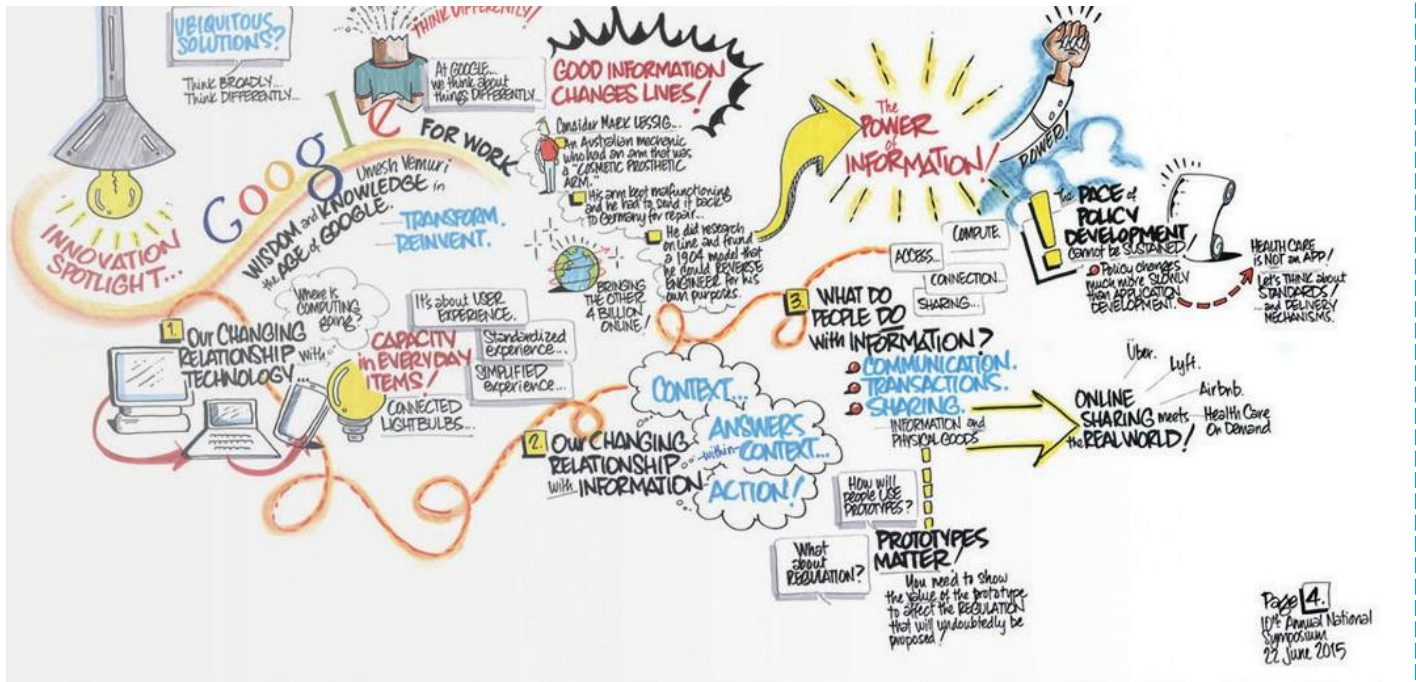 UBIQUITOUS
SOLUTIONS?
Think BROADLY...
Think DIFFERENTLY...
THINK DIFFERENTLY!!
At GOOGLE...
we think about
things DIFFERENTLY...
GOOD INFORMATION
CHANGES LIVES!
INNOVATION
SPOTLIGHT...
Google
FOR WORK
Umesh Vemuri
WISDOM and KNOWLEDGE in
the AGE of GOOGLE.
TRANSFORM.
REINVENT.
Consider MARK LESSIG...
An Australian mechanic
who had an arm that was
a "COSMETIC PROSTHETIC
ARM."
His arm kept malfunctioning
and he had to send it back
to Germany for repair...
He did research
on line and found
a 1904 model that
he could REVERSE
ENGINEER for his
own purposes.
BRINGING
THE OTHER
4 BILLION
ONLINE!
The
POWER
of
INFORMATION!
POWER!
The PACE of
POLICY
DEVELOPMENT
cannot be SUSTAINED!
Policy changes
much more SLOWLY
than APPLICATION
DEVELOPMENT.
HEALTH CARE
is NOT an APP!
Let's THINK about
STANDARDS!
...and DELIVERY
MECHANISMS.
1.
OUR CHANGING
RELATIONSHIP
with
TECHNOLOGY
Where is
COMPUTING
going?
CAPACITY
in EVERYDAY
ITEMS!
It's about USER
EXPERIENCE.
Standardized
experience...
SIMPLIFIED
experience...
CONNECTED
LIGHTBULBS...
2.
OUR CHANGING
RELATIONSHIP
with INFORMATION
CONTEXT...
ANSWERS
within CONTEXT...
ACTION!
3.
WHAT DO
PEOPLE DO
with INFORMATION?
ACCESS...
COMPUTE.
CONNECTION...
SHARING...
COMMUNICATION.
TRANSACTIONS.
SHARING.
INFORMATION and
PHYSICAL GOODS
ONLINE
SHARING meets
the REAL WORLD!
Über.
Lyft.
Airbnb.
Health Care
On Demand
How will
people USE
PROTOTYPES?
What
about
REGULATION?
PROTOTYPES
MATTER!
You need to show
the value of the prototype
to affect the REGULATION
that will undoubtedly be
proposed!
Page 4.
10th Annual National
Symposium
22 June 2015